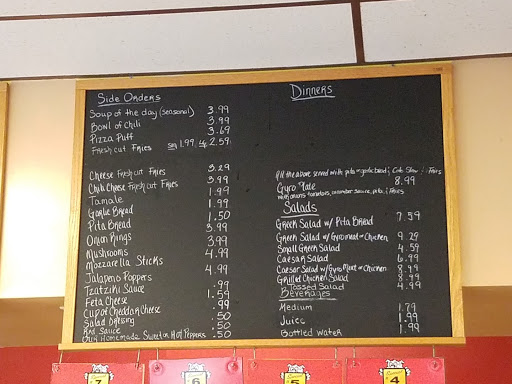 Side Orders
Soup of the day (seasonal) 3.99
Bowl of Chili 3.99
Pizza Puff 3.69
Fresh cut Fries sm 1.99 Lg 2.59
Cheese Fresh cut Fries 3.29
Chili Cheese Fresh cut Fries 3.99
Tamale 1.99
Garlic Bread 1.99
Pita Bread 1.50
Onion Rings 3.99
Mushrooms 3.99
Mozzarella Sticks 4.99
Jalapeno Poppers 4.99
Tzatziki Sauce .99
Feta Cheese 1.59
Cup of Cheddar Cheese .99
Salad Dressing .50
Red Sauce .50
Our Homemade Sweet or Hot Peppers .50
Dinners
All the above served with pita or garlic bread, Cole Slaw, Fries
Gyro Plate 8.99
meat, onions, tomatoes, cucumber sauce, pita, Fries
Salads
Greek Salad w/ Pita Bread 7.59
Greek Salad w/ Gyro meat or Chicken 9.29
Small Greek Salad 4.59
Caesar Salad 6.99
Caesar Salad w/ Gyro Meat or Chicken 8.99
Grilled Chicken Salad 8.99
Tossed Salad 4.99
Beverages
Medium 1.79
Juice 1.99
Bottled Water 1.99
7
6
5
4